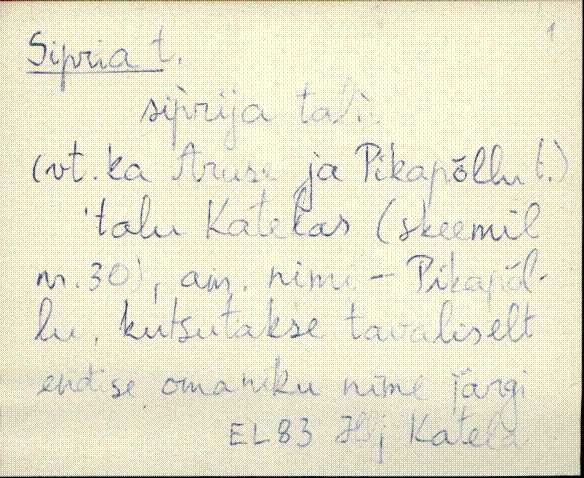 1
Sipria t.
sip̀rija talu
(vt. ka Aruse ja Pikapõllu t.)
'talu Katelas (skeemil
nr. 30), am. nimi – Pikapõl-
lu, kutsutakse tavaliselt
endise omaniku nime järgi
EL83 Hlj Katela